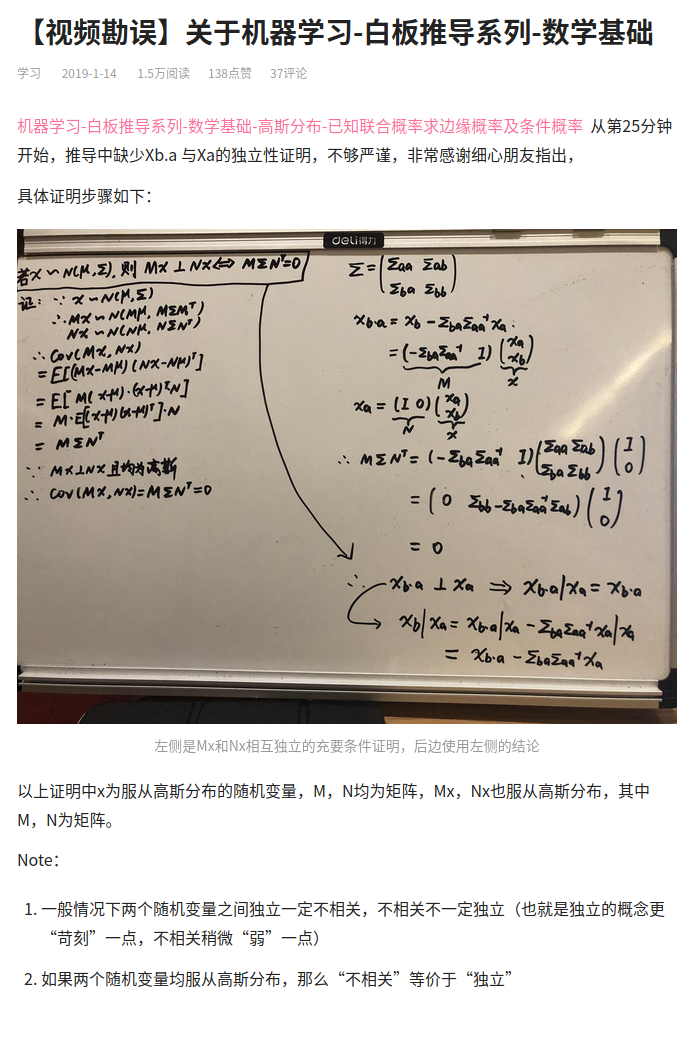 【视频勘误】关于机器学习-白板推导系列-数学基础
学习 2019-1-14 1.5万阅读 138点赞 37评论
机器学习-白板推导系列-数学基础-高斯分布-已知联合概率求边缘概率及条件概率 从第25分钟
开始，推导中缺少Xb.a 与Xa的独立性证明，不够严谨，非常感谢细心朋友指出，
具体证明步骤如下：
deli得力
若x ∽ N(μ,Σ), 则 Mx ⊥ Nx ⇔ MΣNᵀ=0
证: ∵ x ∽ N(μ,Σ)
∴ Mx ∽ N(Mμ, MΣMᵀ)
Nx ∽ N(Nμ, NΣNᵀ)
∴ Cov(Mx, Nx)
= E[(Mx-Mμ)(Nx-Nμ)ᵀ]
= E[M(x-μ)·(x-μ)ᵀN]
= M·E[(x-μ)(x-μ)ᵀ]·N
= MΣNᵀ
∵ Mx⊥Nx 且均为高斯
∴ Cov(Mx,Nx)=MΣNᵀ=0
Σ = (Σaa Σab
Σba Σbb)
xb·a = xb - ΣbaΣaa⁻¹xa
= (-ΣbaΣaa⁻¹ I) (xa
xb)
M x
xa = (I 0) (xa
xb)
N x
∴ MΣNᵀ = (-ΣbaΣaa⁻¹ I) (Σaa Σab
Σba Σbb) (I
0)
= (0 Σbb-ΣbaΣaa⁻¹Σab) (I
0)
= 0
∴ xb·a ⊥ xa ⇒ xb·a|xa = xb·a
xb|xa = xb·a|xa - ΣbaΣaa⁻¹xa|xa
= xb·a - ΣbaΣaa⁻¹xa
左侧是Mx和Nx相互独立的充要条件证明，后边使用左侧的结论
以上证明中x为服从高斯分布的随机变量，M，N均为矩阵，Mx，Nx也服从高斯分布，其中
M，N为矩阵。
Note：
1. 一般情况下两个随机变量之间独立一定不相关，不相关不一定独立（也就是独立的概念更
“苛刻”一点，不相关稍微“弱”一点）
2. 如果两个随机变量均服从高斯分布，那么“不相关”等价于“独立”